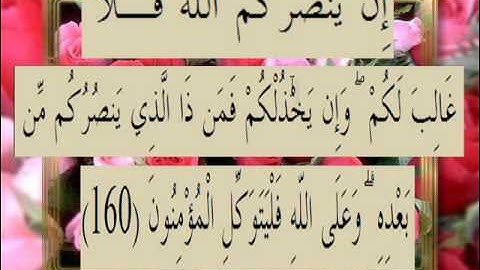 إِن يَنصُرْكُمُ اللَّهُ فَـــلَا
غَالِبَ لَكُمْ ۖ وَإِن يَخْذُلْكُمْ فَمَن ذَا الَّذِي يَنصُرُكُم مِّن
بَعْدِهِ ۗ وَعَلَى اللَّهِ فَلْيَتَوَكَّلِ الْمُؤْمِنُونَ (160)